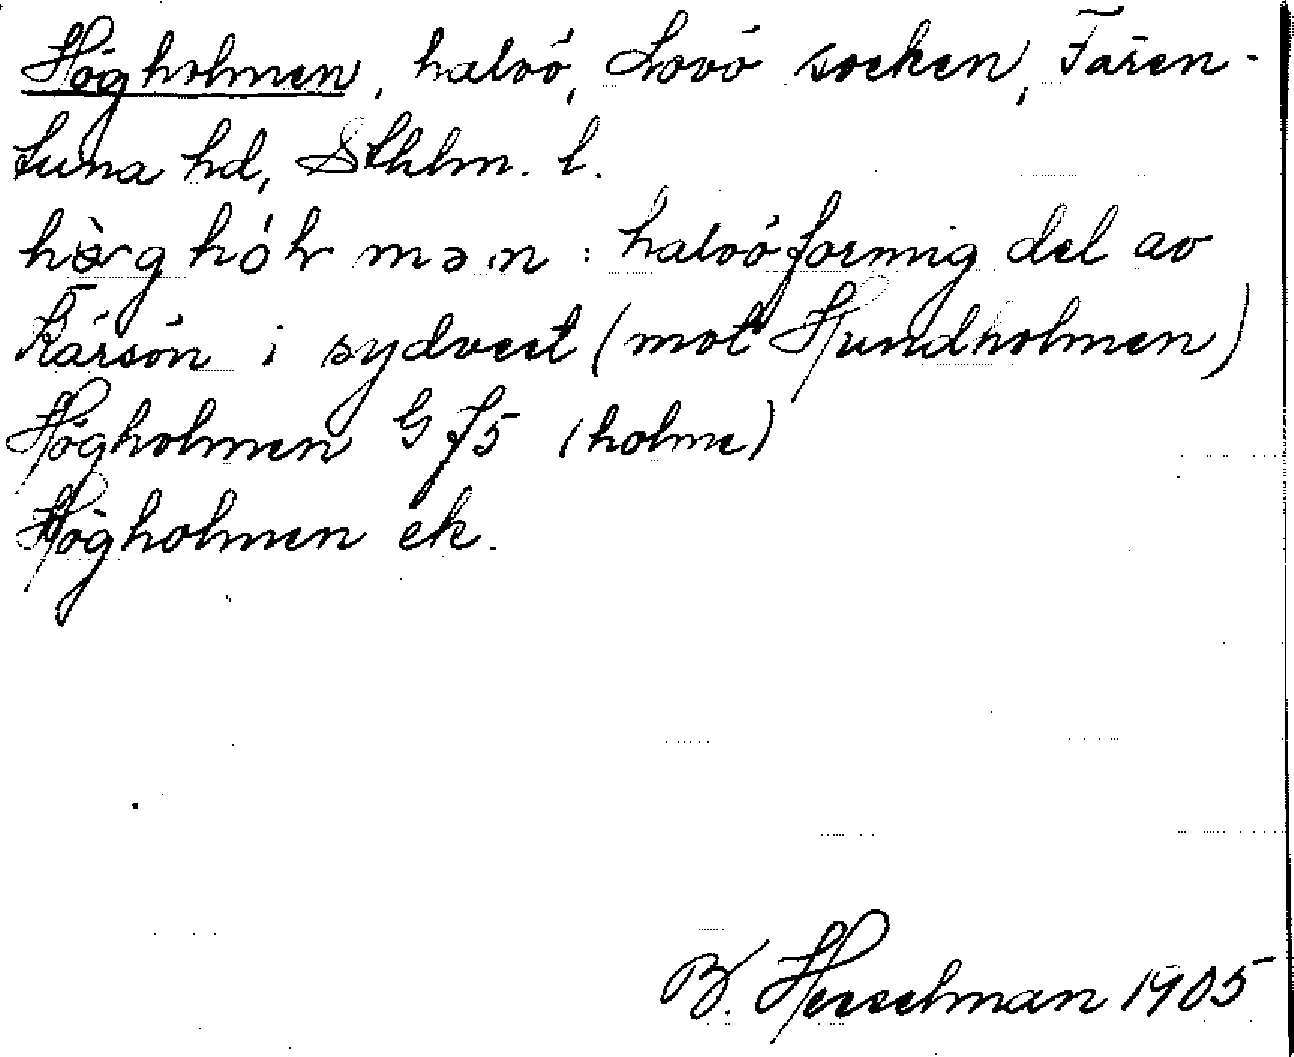 Högholmen, halvö, Lovö socken, Fären-
tuna hd, Sthlm. l.
: halvöformig del av
Kärsön i sydvest (mot Hundholmen)
Högholmen G f5 (holme)
Högholmen ek.
B. Hesselman 1905